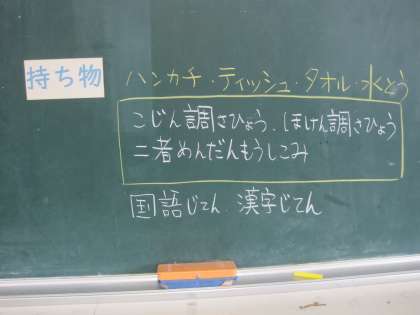 持ち物
ハンカチ・ティッシュ・タオル・水とう
こじん調さひょう、ほけん調さひょう
二者めんだんもうしこみ
国語じてん、漢字じてん